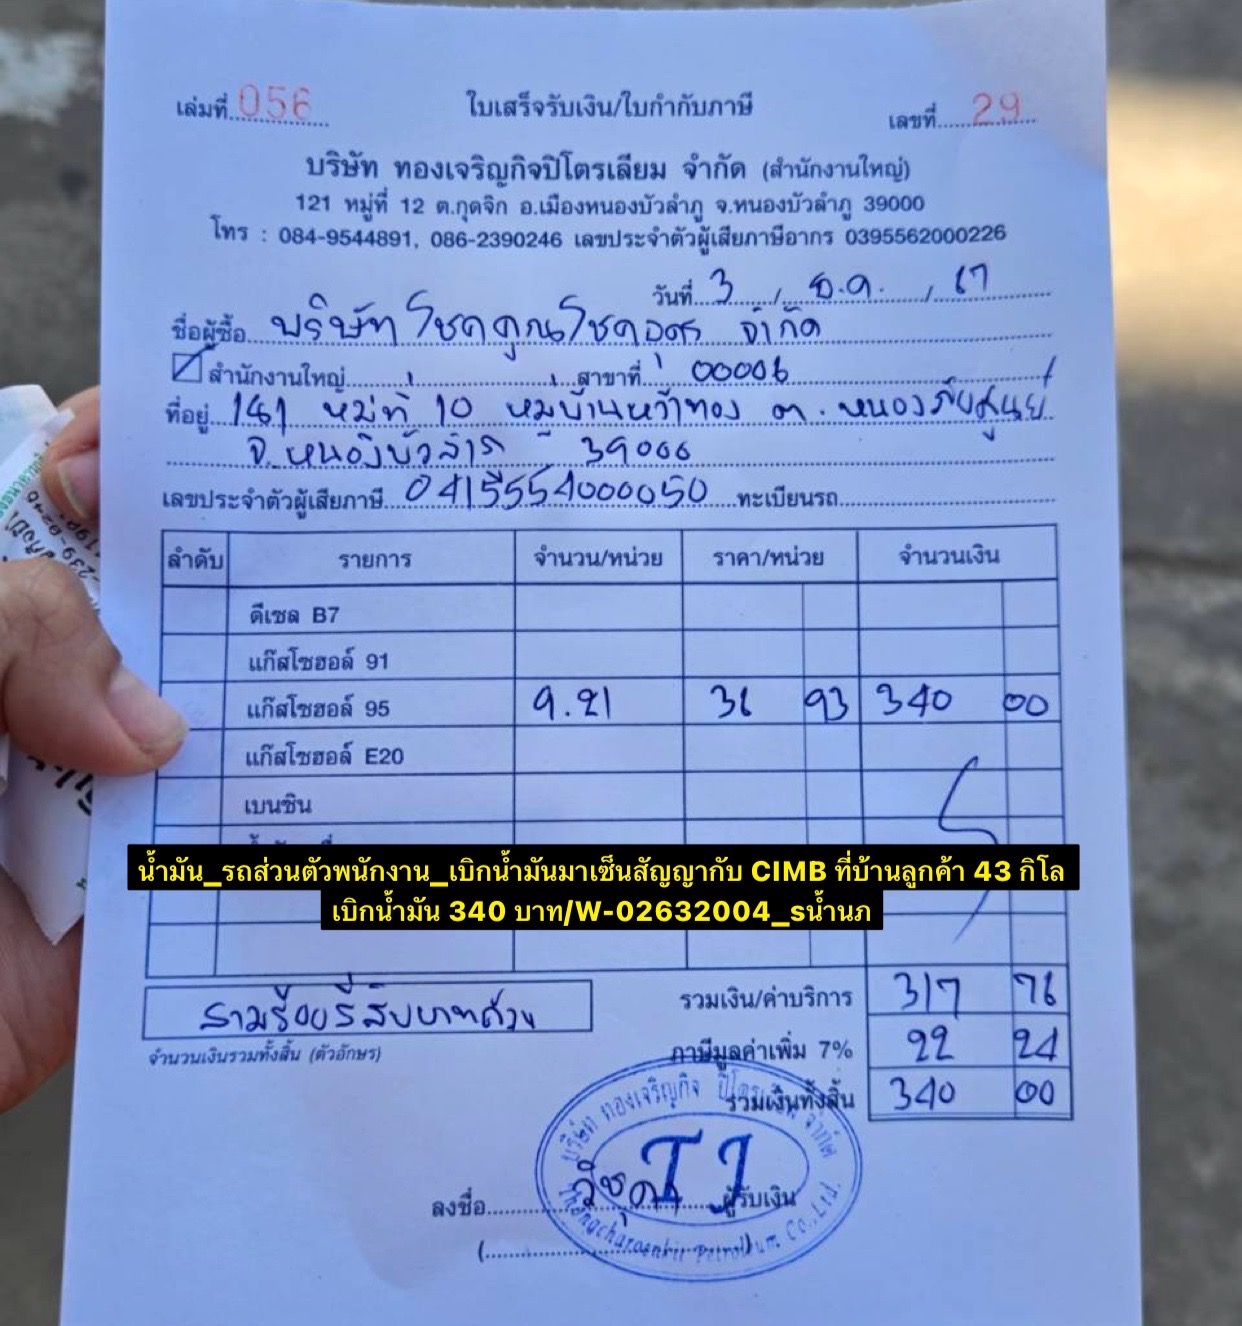 เล่มที่ 056 ใบเสร็จรับเงิน/ใบกำกับภาษี เลขที่ 29
บริษัท ทองเจริญกิจปิโตรเลียม จำกัด (สำนักงานใหญ่)
121 หมู่ที่ 12 ต.กุดจิก อ.เมืองหนองบัวลำภู จ.หนองบัวลำภู 39000
โทร : 084-9544891, 086-2390246 เลขประจำตัวผู้เสียภาษีอากร 0395562000226
วันที่ 3 / ธ.ค. / 67
ชื่อผู้ซื้อ บริษัท โชคคูณโชคอุดร จำกัด
สำนักงานใหญ่ สาขาที่ 00006
ที่อยู่ 141 หมู่ที่ 10 หมู่บ้านหว้าทอง ต.หนองภัยศูนย์
จ.หนองบัวลำภู 39000
เลขประจำตัวผู้เสียภาษี 0415554000050 ทะเบียนรถ
ลำดับ รายการ จำนวน/หน่วย ราคา/หน่วย จำนวนเงิน
ดีเซล B7
แก๊สโซฮอล์ 91
แก๊สโซฮอล์ 95 9.21 36 93 340 00
แก๊สโซฮอล์ E20
เบนซิน
น้ำมัน_รถส่วนตัวพนักงาน_เบิกน้ำมันมาเซ็นสัญญากับ CIMB ที่บ้านลูกค้า 43 กิโล
เบิกน้ำมัน 340 บาท/W-02632004_sน้ำนภ
รวมเงิน/ค่าบริการ 317 76
สามร้อยสี่สิบบาทถ้วน
จำนวนเงินรวมทั้งสิ้น (ตัวอักษร) ภาษีมูลค่าเพิ่ม 7% 22 24
รวมเงินทั้งสิ้น 340 00
บริษัท ทองเจริญกิจ ปิโตรเลียม จำกัด
TJ
ลงชื่อ ผู้รับเงิน
Thongcharoenkit Petroleum Co.,Ltd.